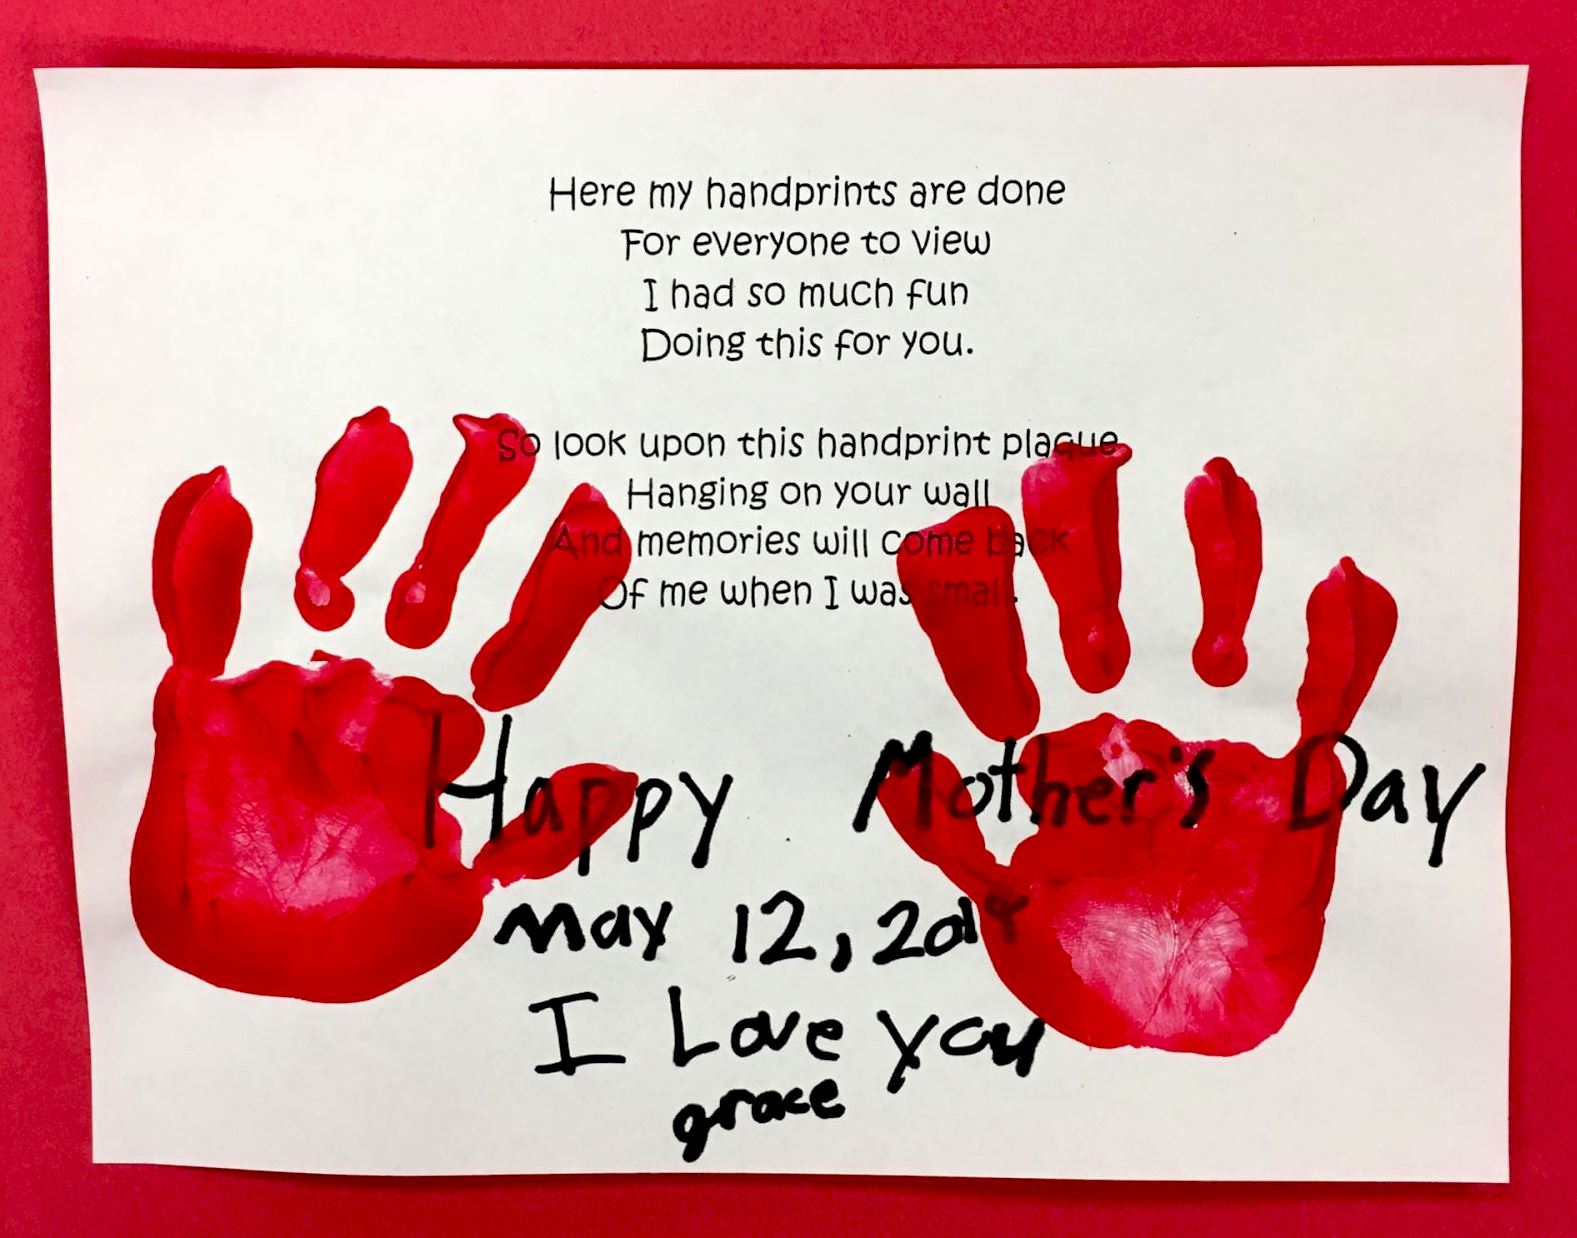 Here my handprints are done
For everyone to view
I had so much fun
Doing this for you.
So look upon this handprint plaque
Hanging on your wall
And memories will come back
Of me when I was small.
Happy Mother's Day
May 12, 2019
I Love you
grace